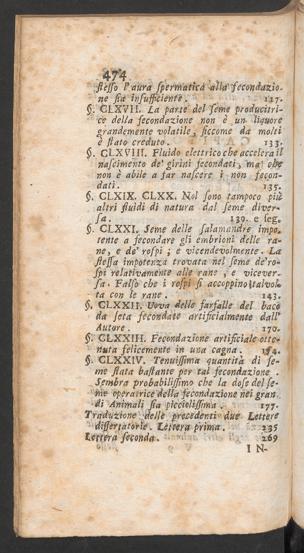 474
stesso l'aura spermatica alla fecondazio-
ne sia insufficiente. 127.
§. CLXVII. La parte del seme producitri-
ce della fecondazione non è un liquore
grandemente volatile, siccome da molti
è stato creduto. 133.
§. CLXVIII. Fluido elettrico che accelera il
nascimento de' girini fecondati, ma che
non è abile a far nascere i non fecon-
dati. 135.
§. CLXIX. CLXX. Nol sono tampoco più
altri fluidi di natura dal seme diver-
sa. 139. e seg.
§. CLXXI. Seme delle salamandre impo-
tente a fecondare gli embrioni delle ra-
ne, e de' rospi; e vicendevolmente. La
stessa impotenza trovata nel seme de' ro-
spi relativamente alle rane, e vicever-
sa. Falso che i rospi si accoppino talvol-
ta con le rane. 143.
§. CLXXII. Uova delle farfalle del baco
da seta fecondate artificialmente dall'
Autore. 170.
§. CLXXIII. Fecondazione artificiale otte-
nuta felicemente in una cagna. 154.
§. CLXXIV. Tenuissima quantità di se-
me stata bastante per tal fecondazione.
Sembra probabilissimo che la dose del se-
me operatrice della fecondazione nei gran-
di Animali sia picciolissima. 177.
Traduzione delle precedenti due Lettere
dissertatorie. Lettera prima. 235
Lettera seconda. 269
IN-